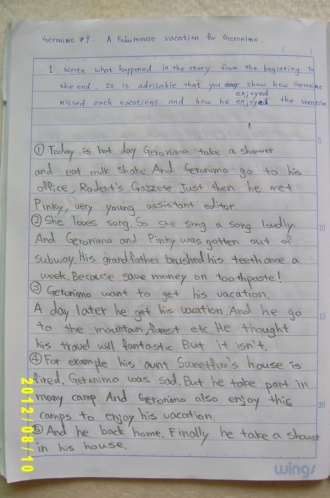 Geronimo #9. A Fabumouse vacation for Geronimo.
I write what happened in the story from the beginning to
the end. It is advisable that you show how Geronimo
enjoyed
missed each vacations and how he enjoyed the vacation
① Today is hot day Geronimo take a shower
and eat milk shake And Geronimo go to his
office, Rodent's Gazzete Just then he met
Pinky, very young assistant editor.
② She loves song. So she sing a song loudly.
And Geronimo and Pinky was gotten out of
subway. His grandfather brushed his teeth once a
week. Because save money on toothpaste!
③ Geronimo want to get his vacation.
A day later he get his vocation. And he go
to the mountain, forest etc He thought
his travel will fantastic But it isn't.
④ For example his aunt Sweetfur's house is
fired. Geronimo was sad. But he take part in
many camp And Geronimo also enjoy this
camps to enjoy his vacation.
⑤ And he back home. Finally he take a shower
in his house.
2012/08/10
wings